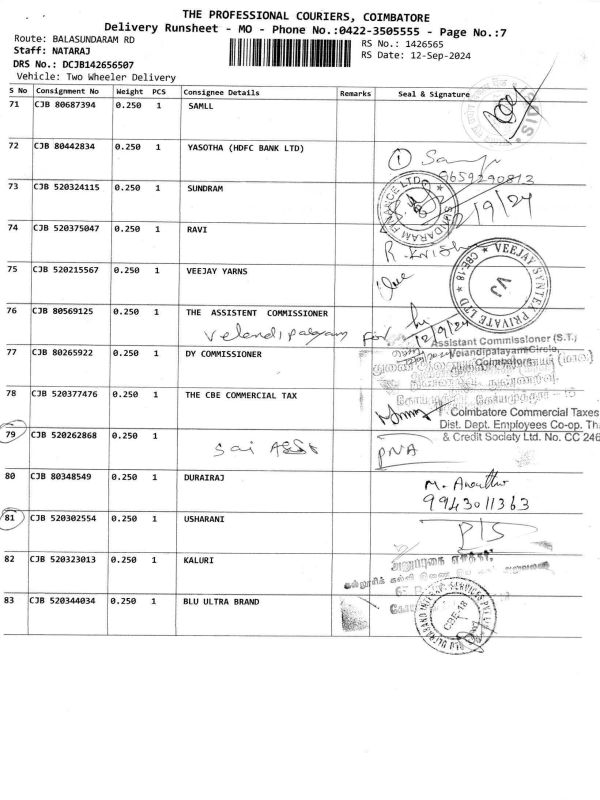 THE PROFESSIONAL COURIERS, COIMBATORE
Delivery Runsheet - MO - Phone No.:0422-3505555 - Page No.:7
Route: BALASUNDARAM RD RS No.: 1426565
Staff: NATARAJ RS Date: 12-Sep-2024
DRS No.: DCJB142656507
Vehicle: Two Wheeler Delivery
S No Consignment No Weight PCS Consignee Details Remarks Seal & Signature
71 CJB 80687394 0.250 1 SAMLL
72 CJB 80442834 0.250 1 YASOTHA (HDFC BANK LTD)
1
9659290813
73 CJB 520324115 0.250 1 SUNDRAM
SUNDARAM FINANCE LTD
12/9/24
74 CJB 520375047 0.250 1 RAVI
75 CJB 520215567 0.250 1 VEEJAY YARNS
VEEJAY SYNTEX PRIVATE LTD
CBE-18
VJ
76 CJB 80569125 0.250 1 THE ASSISTENT COMMISSIONER
Velandipalayam for
12/9/24
Assistant Commissioner (S.T.)
Velandipalayam Circle,
Coimbatore
77 CJB 80265922 0.250 1 DY COMMISSIONER
78 CJB 520377476 0.250 1 THE CBE COMMERCIAL TAX
Coimbatore Commercial Taxes
Dist. Dept. Employees Co-op. Th
& Credit Society Ltd. No. CC 246
79 CJB 520262868 0.250 1
Sai
PNA
80 CJB 80348549 0.250 1 DURAIRAJ
9943011363
81 CJB 520302554 0.250 1 USHARANI
P/S
82 CJB 520323013 0.250 1 KALURI
83 CJB 520344034 0.250 1 BLU ULTRA BRAND
CBE-18